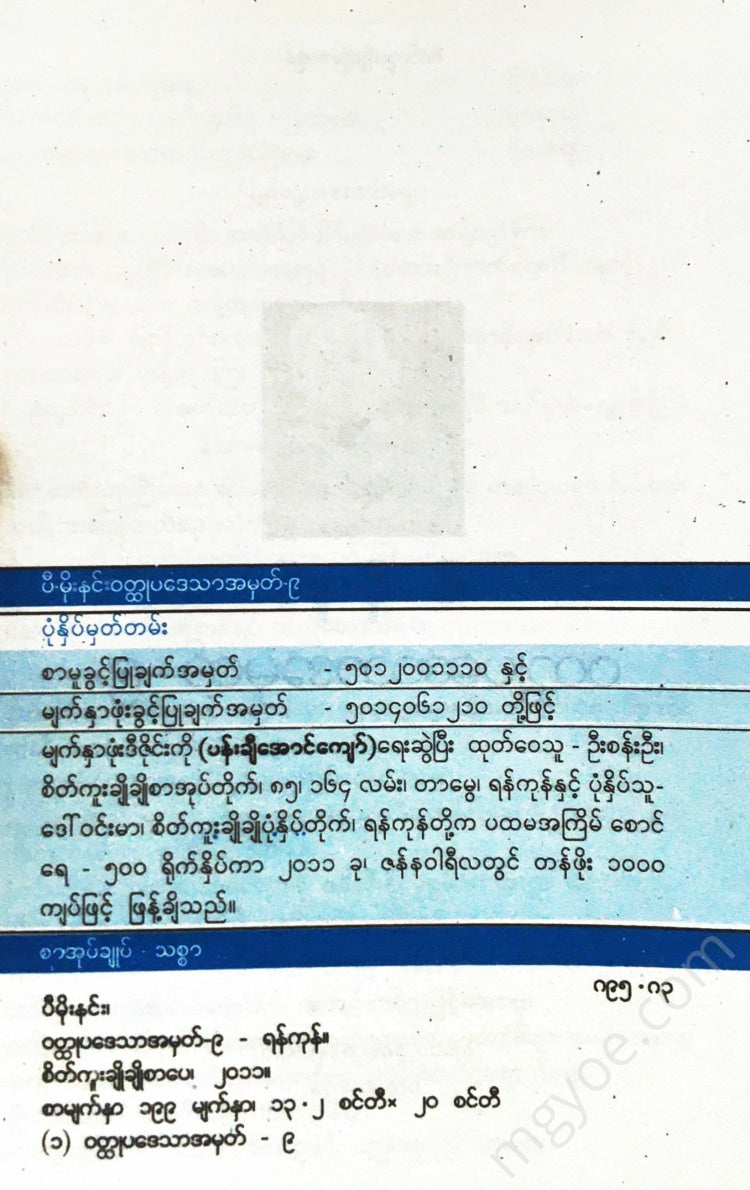 ပီ-မိုးနင်းဝတ္ထုပဒေသာအမှတ်-၉
ပုံနှိပ်မှတ်တမ်း
စာမူခွင့်ပြုချက်အမှတ် - ၅၀၁၂၀၀၁၁၁၀ နှင့်
မျက်နှာဖုံးခွင့်ပြုချက်အမှတ် - ၅၀၁၄၀၆၁၂၁၀ တို့ဖြင့်
မျက်နှာဖုံးဒီဇိုင်းကို (ပန်းချီအောင်ကျော်)ရေးဆွဲပြီး ထုတ်ဝေသူ - ဦးစန်းဦး၊
စိတ်ကူးချိုချိုစာအုပ်တိုက်၊ ၈၅၊ ၁၆၄ လမ်း၊ တာမွေ၊ ရန်ကုန်နှင့် ပုံနှိပ်သူ-
ဒေါ်ဝင်းမာ၊ စိတ်ကူးချိုချိုပုံနှိပ်တိုက်၊ ရန်ကုန်တို့က ပထမအကြိမ် စောင်
ရေ - ၅၀၀ ရိုက်နှိပ်ကာ ၂၀၁၁ ခု၊ ဇန်နဝါရီလတွင် တန်ဖိုး ၁၀၀၀
ကျပ်ဖြင့် ဖြန့်ချိသည်။
စာအုပ်ချုပ် - သစ္စာ
၈၉၅.၈၃
ပီမိုးနင်း။
ဝတ္ထုပဒေသာအမှတ်-၉ - ရန်ကုန်။
စိတ်ကူးချိုချိုစာပေ၊ ၂၀၁၁။
စာမျက်နှာ ၁၉၉ မျက်နှာ၊ ၁၃.၂ စင်တီ× ၂၀ စင်တီ
(၁) ဝတ္ထုပဒေသာအမှတ် - ၉
mgyoe.com